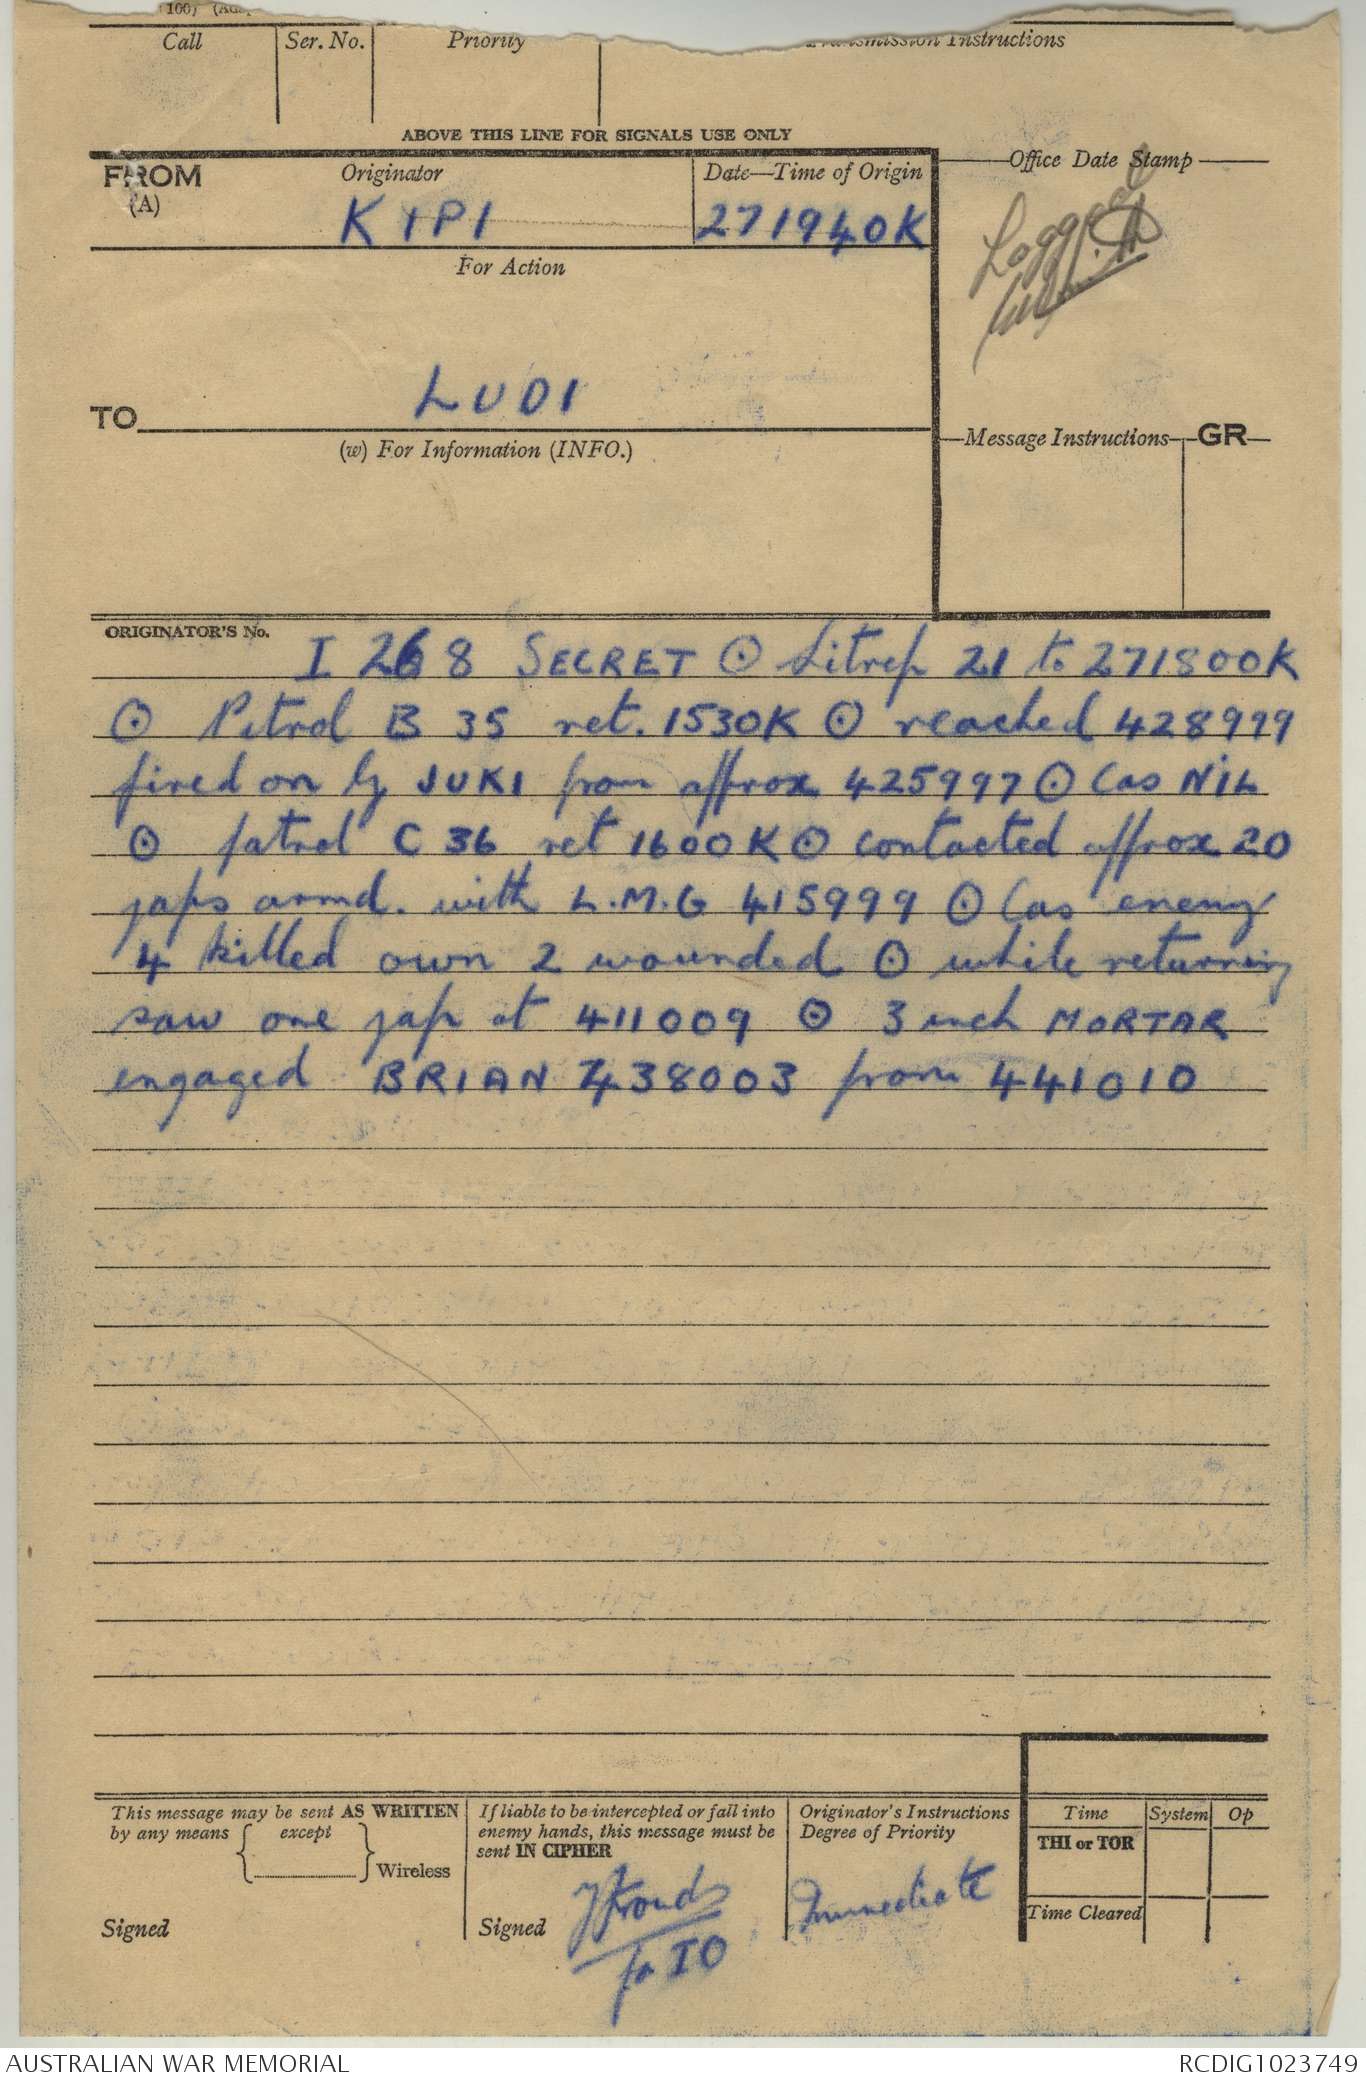 100) (AG
Call Ser. No. Priority Transmission Instructions
ABOVE THIS LINE FOR SIGNALS USE ONLY
FROM
(A)
Originator
KIPI
Date—Time of Origin
271940K
Office Date Stamp
Logged
For Action
LUDI
TO
(w) For Information (INFO.)
Message Instructions GR
ORIGINATOR'S No.
I 268 SECRET ⊙ Sitrep 21 to 271800K
⊙ Patrol B 35 ret. 1530K ⊙ reached 428999
fired on by JUKI from approx 425997 ⊙ Cas NIL
⊙ patrol C 36 ret 1600K ⊙ contacted approx 20
japs armd. with L.M.G 415999 ⊙ Cas enemy
4 killed own 2 wounded ⊙ while returning
saw one jap at 411009 ⊙ 3 inch MORTAR
engaged BRIAN 438003 from 441010
This message may be sent AS WRITTEN
by any means { except } Wireless
Signed
If liable to be intercepted or fall into
enemy hands, this message must be
sent IN CIPHER
Signed
for IO
Originator's Instructions
Degree of Priority
Immediate
Time System Op
THI or TOR
Time Cleared
AUSTRALIAN WAR MEMORIAL RCDIG1023749